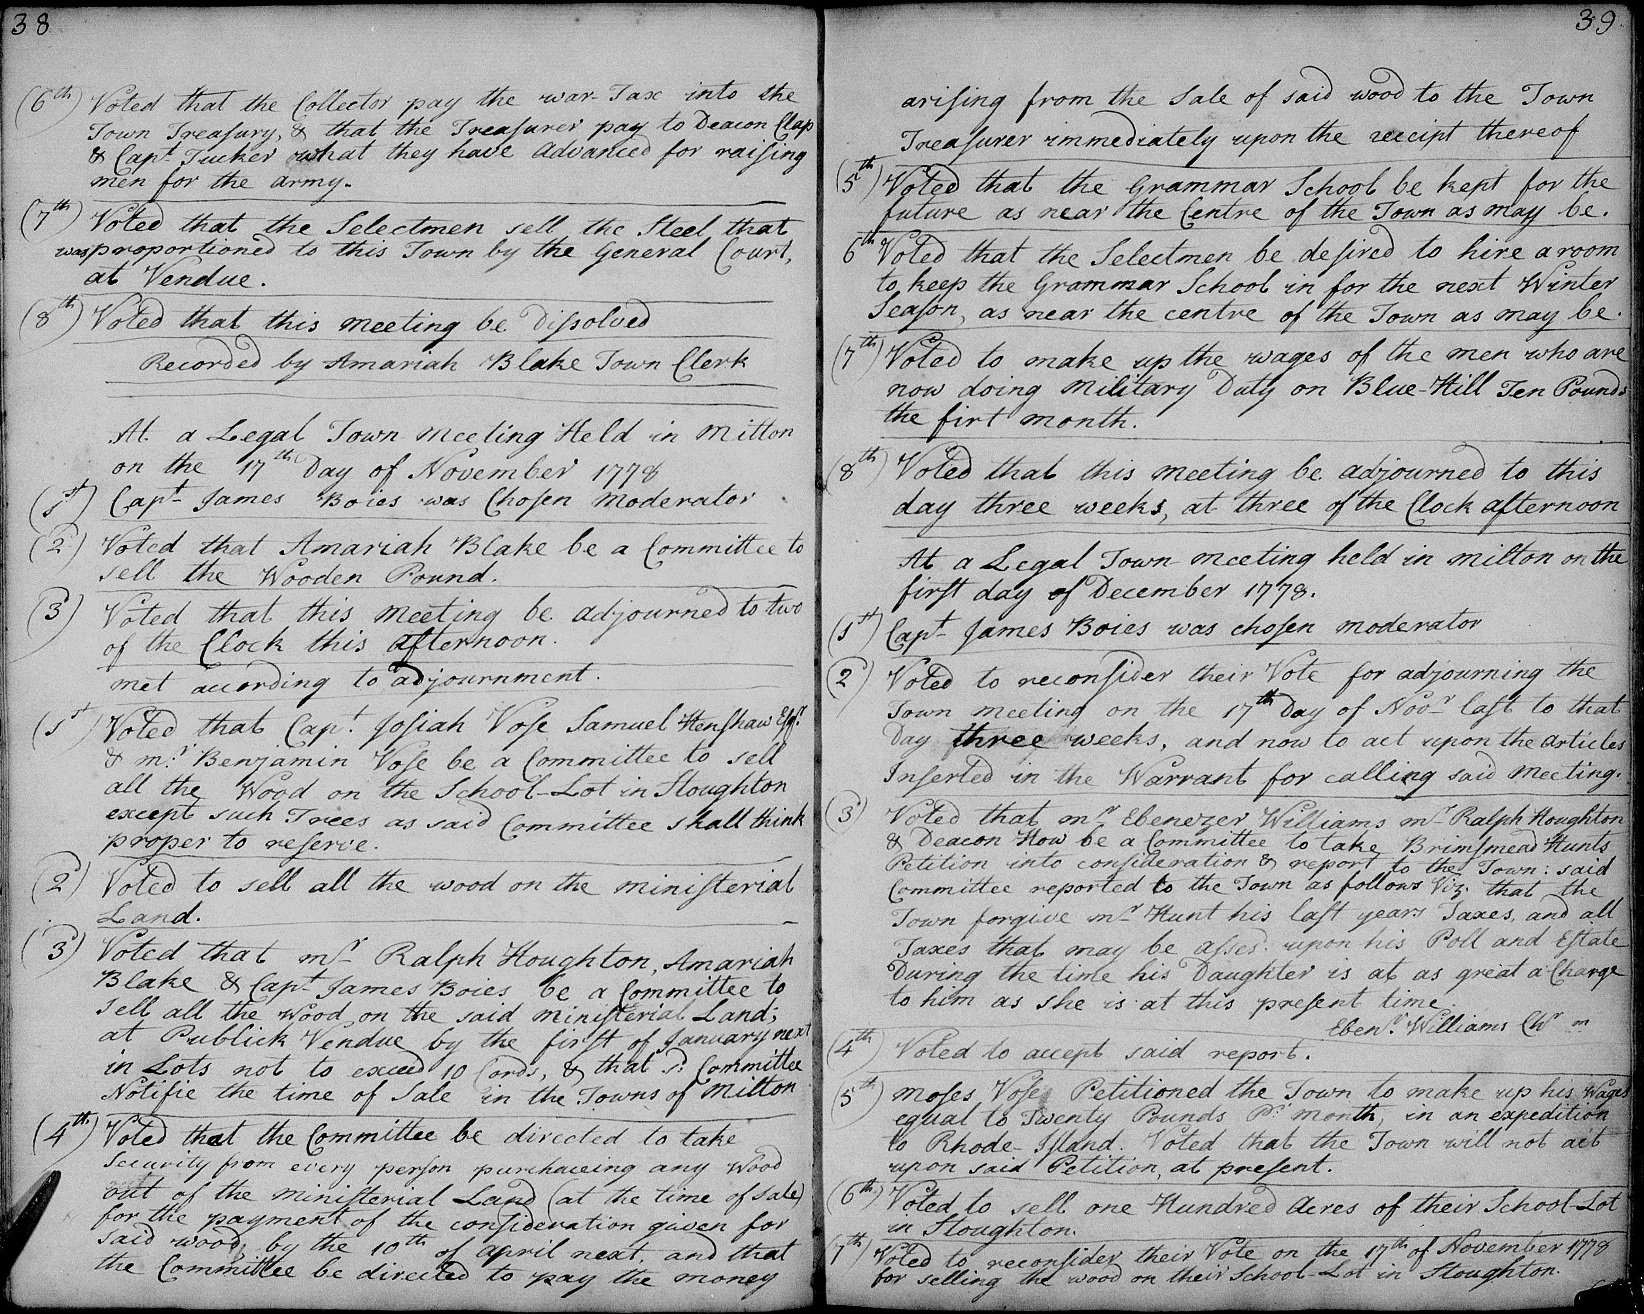 38
(6th) Voted that the Collector pay the war-Tax into the
Town Treasury, & that the Treasurer pay to Deacon Clap
& Capt. Tucker what they have advanced for raising
men for the army.
(7th) Voted that the Selectmen sell the Steel that
was proportioned to this Town by the General Court,
at Vendue.
(8th) Voted that this meeting be Dissolved
Recorded by Amariah Blake Town Clerk
At a Legal Town meeting Held in Milton
on the 17th Day of November 1778
(1st) Capt. James Boies was Chosen moderator
(2) Voted that Amariah Blake be a Committee to
sell the Wooden Pound.
(3) Voted that this meeting be adjourned to two
of the Clock this afternoon.
met according to adjournment.
(1st) Voted that Capt. Josiah Vose Samuel Henshaw Esqr.
& mr. Benjamin Vose be a Committee to sell
all the Wood on the School-Lot in Stoughton
except such Trees as said Committee shall think
proper to reserve.
(2) Voted to sell all the wood on the ministerial
Land.
(3) Voted that mr Ralph Houghton, Amariah
Blake & Capt James Boies be a Committee to
sell all the wood on the said ministerial Land;
at Publick Vendue by the first of January next
in Lots not to exceed 10 Cords, & that sd. Committee
Notifie the time of Sale in the Towns of Milton
(4th) Voted that the Committee be directed to take
Security from every person purchaceing any Wood
out of the ministerial Land (at the time of sale)
for the payment of the consideration given for
said wood, by the 10th of april next, and that
the Committee be directed to pay the money
39
arising from the Sale of said wood to the Town
Treasurer immediately upon the receipt thereof
(5th) Voted that the Grammar School be kept for the
future as near the Centre of the Town as may be.
6th Voted that the Selectmen be desired to hire a room
to keep the Grammar School in for the next Winter
Season, as near the centre of the Town as may be.
(7th) Voted to make up the wages of the men who are
now doing military Duty on Blue-Hill Ten Pounds
the firt month.
(8th) Voted that this meeting be adjourned to this
day three weeks, at three of the Clock afternoon
At a Legal Town meeting held in milton on the
first day of December 1778.
(1st) Capt James Boies was chosen moderator
(2) Voted to reconsider their Vote for adjourning the
Town meeting on the 17th Day of Novr last to that
Day three weeks, and now to act upon the articles
Inserted in the Warrant for calling said meeting.
(3) Voted that mr Ebenezer Williams mr Ralph Houghton
& Deacon How be a Committee to take Brimsmead Hunts
Petition into consideration & report to the Town: said
Committee reported to the Town as follows Viz. that the
Town forgive mr Hunt his last years Taxes, and all
Taxes that may be assed. upon his Poll and Estate
During the time his Daughter is at as great a Charge
to him as she is at this present time.
Ebenr. Williams Chr m
(4th) Voted to accept said report.
(5th) Moses Vose Petitioned the Town to make up his Wages
equal to Twenty Pounds Pr month, in an expedition
to Rhode-Island. Voted that the Town will not act
upon said Petition, at present.
(6th) Voted to sell one Hundred Acres of their School-Lot
in Stoughton.
(7th) Voted to reconsider their Vote on the 17th of November 1778
for selling the wood on their School-Lot in Stoughton.